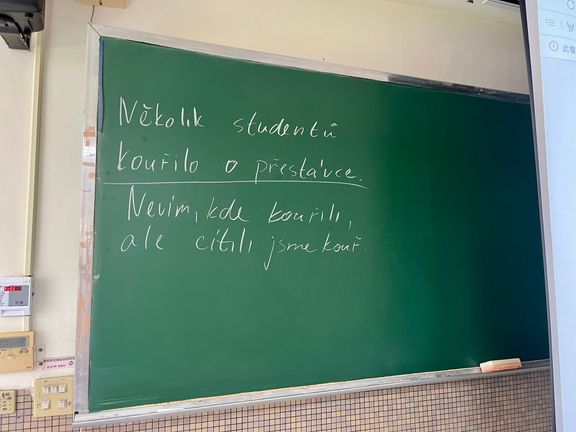 Několik studentů
kouřilo o přestávce.
Nevím, kde kouřili,
ale cítili jsme kouř.